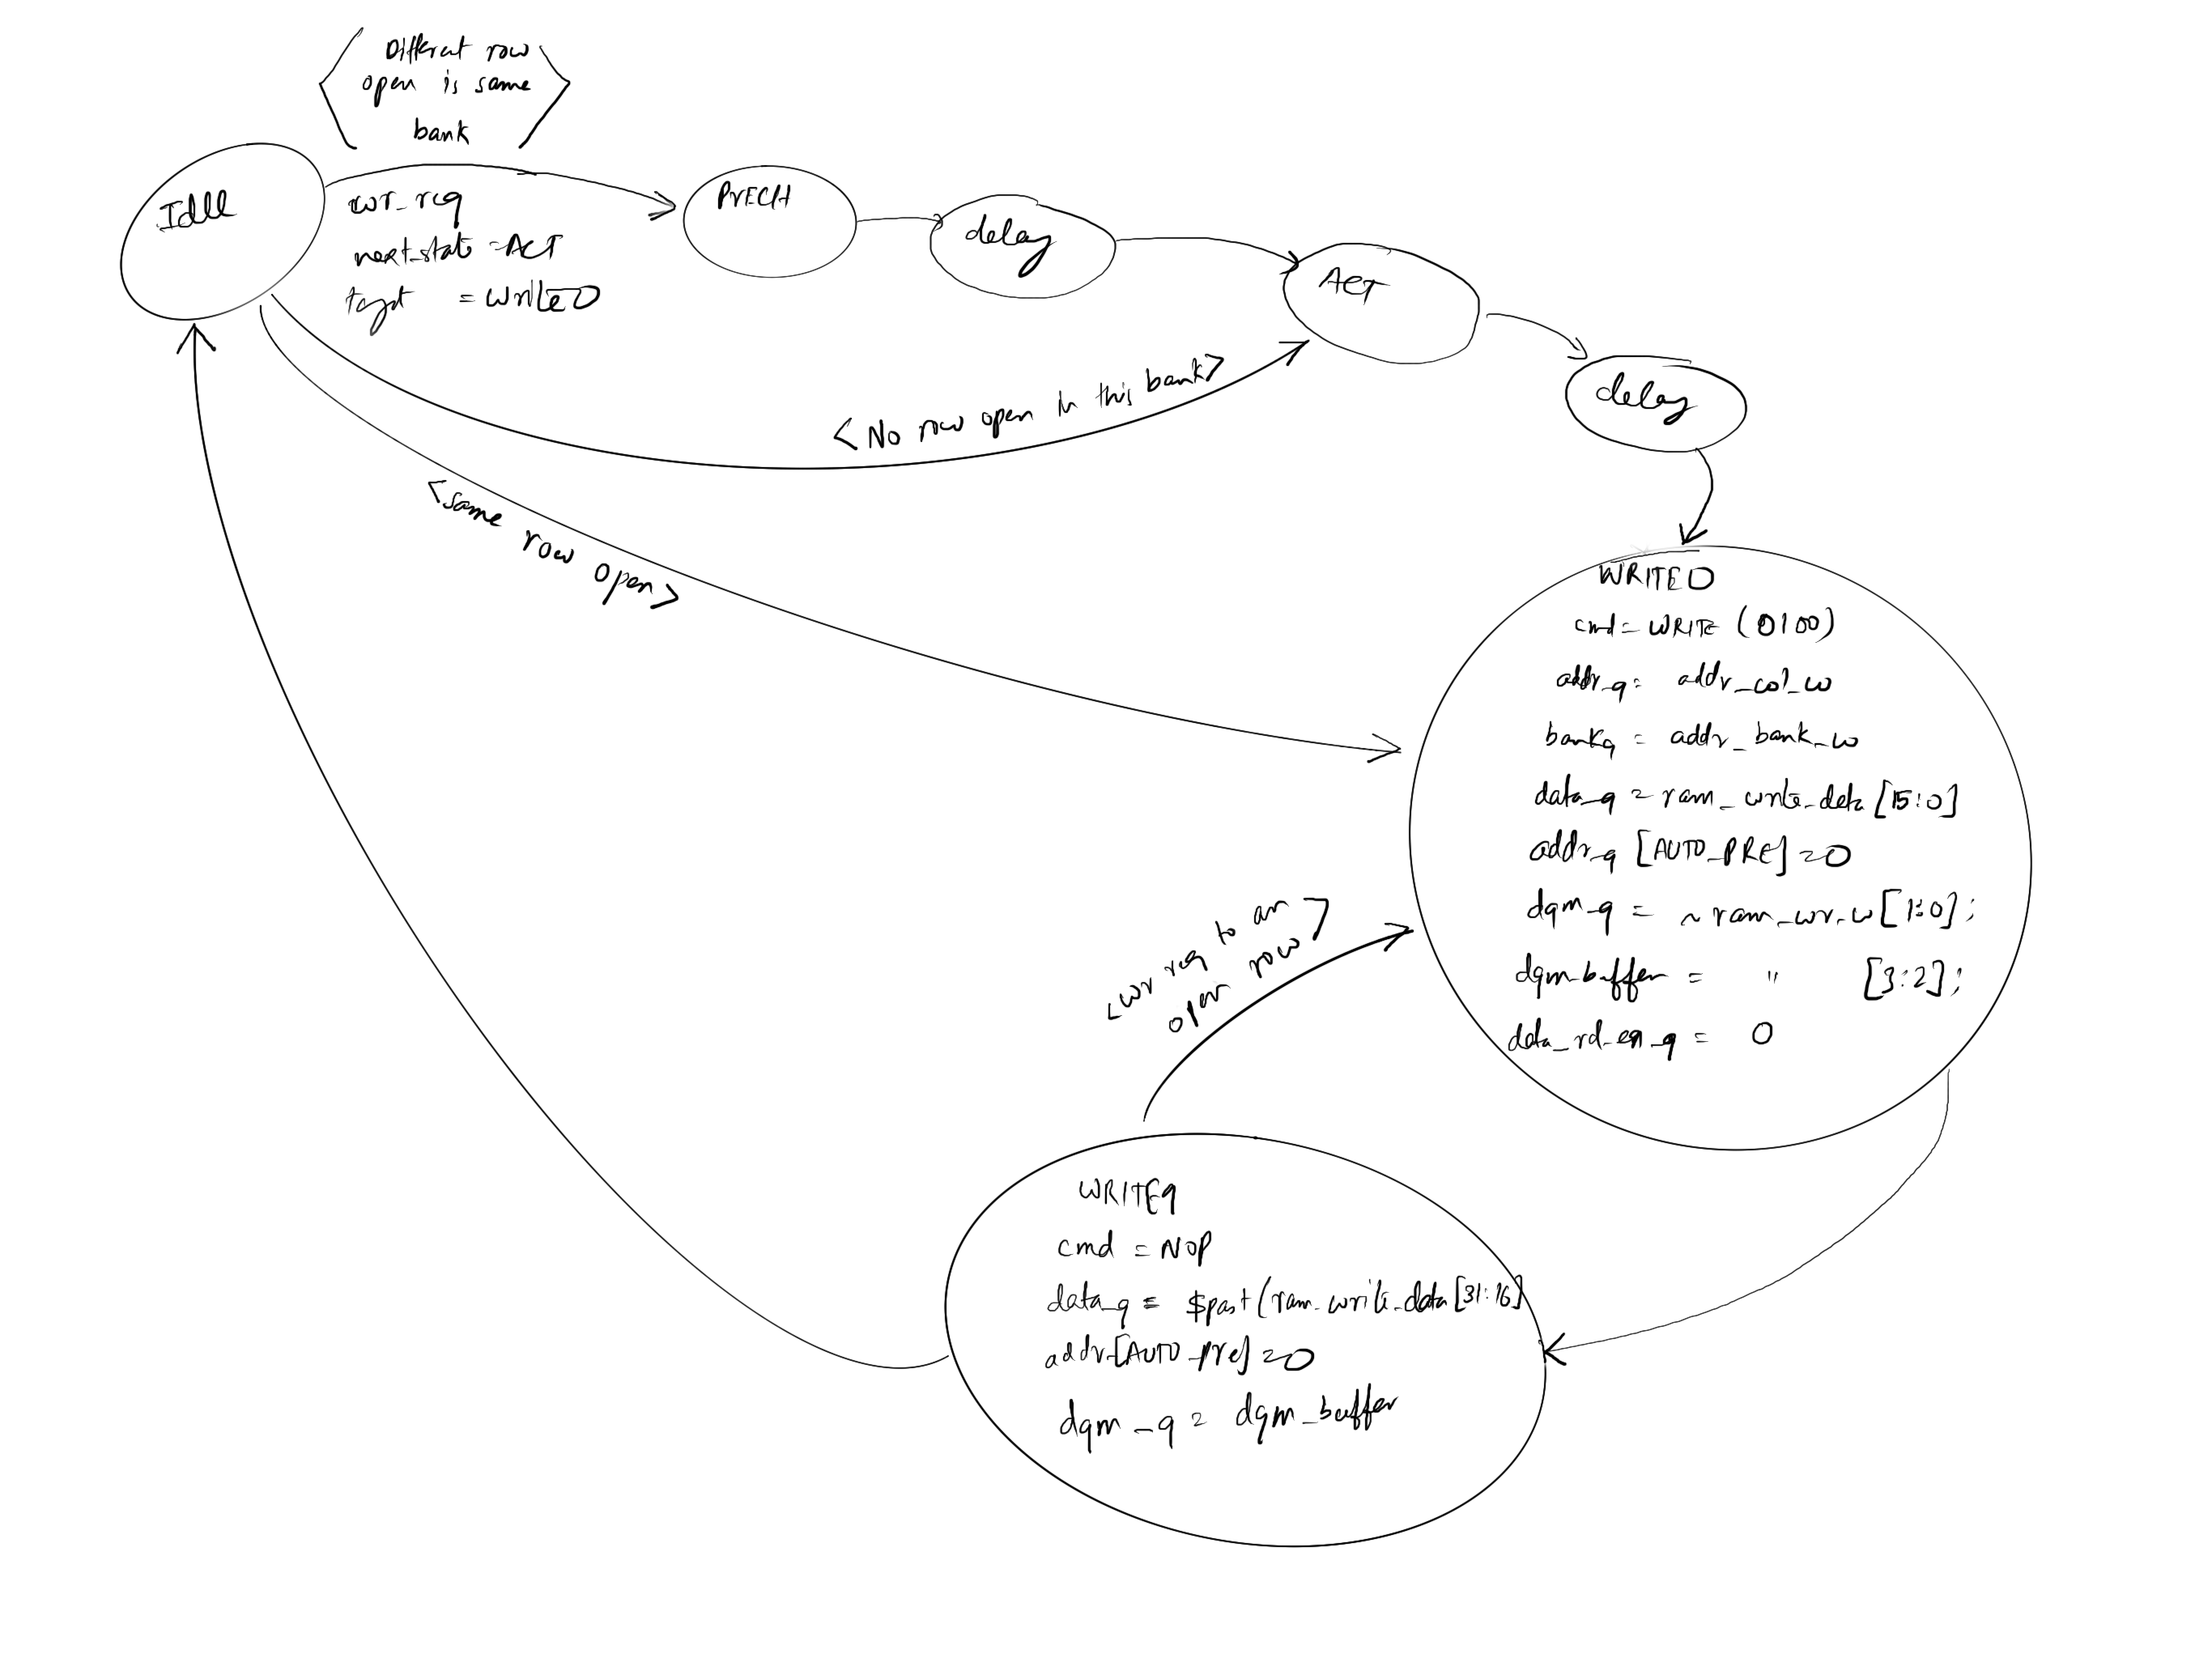 Different row
open is same
bank
Idle
wr_req
next_state = ACT
= Write0
PrECH
delay
ACT
delay
<No row open in this bank>
<same row open>
WRITE0
cmd = WRITE (0100)
addr_q = addr_col_w
bank_q = addr_bank_w
data_q = ram_write_data [15:0]
addr_q [AUTO_PRE] = 0
dqm_q = ~ram_wr_w [1:0];
dqm_buffer = " [3:2];
data_rd_en_q = 0
<wr req to an
open row>
WRITE1
cmd = NOP
data_q = $past(ram_write_data [31:16]
addr_[AUTO_Pre] = 0
dqm_q = dqm_buffer